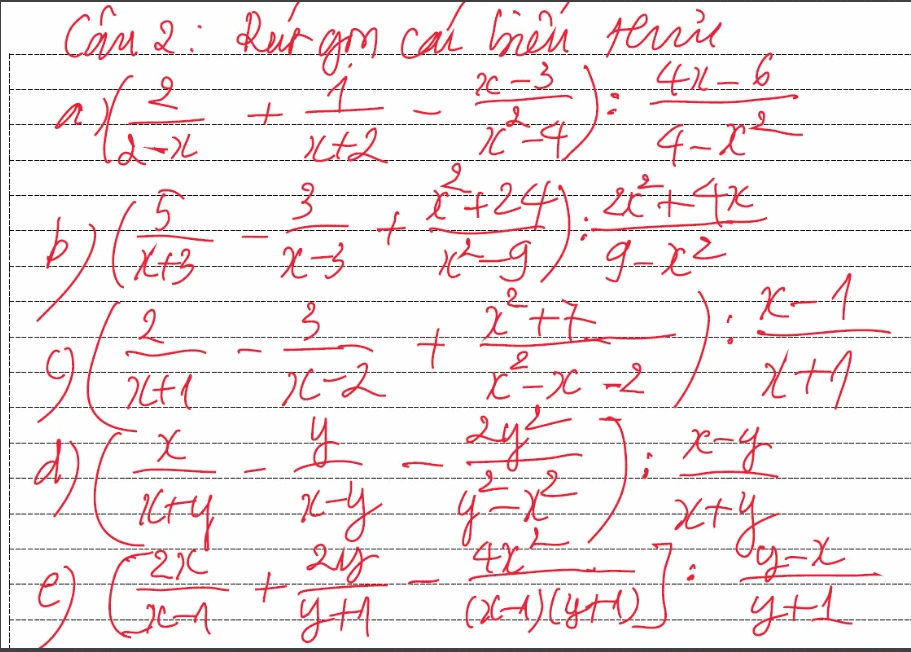 Câu 2: Rút gọn các biểu thức
a) (2/(2-x) + 1/(x+2) - (x-3)/(x²-4)) : (4x-6)/(4-x²)
b) (5/(x+3) - 3/(x-3) + (x²+24)/(x²-9)) : (2x²+4x)/(9-x²)
c) (2/(x+1) - 3/(x-2) + (x²+7)/(x²-x-2)) : (x-1)/(x+1)
d) (x/(x+y) - y/(x-y) - 2y²/(y²-x²)) : (x-y)/(x+y)
e) [2x/(x-1) + 2y/(y+1) - 4x²/((x-1)(y+1))] : (y-x)/(y+1)